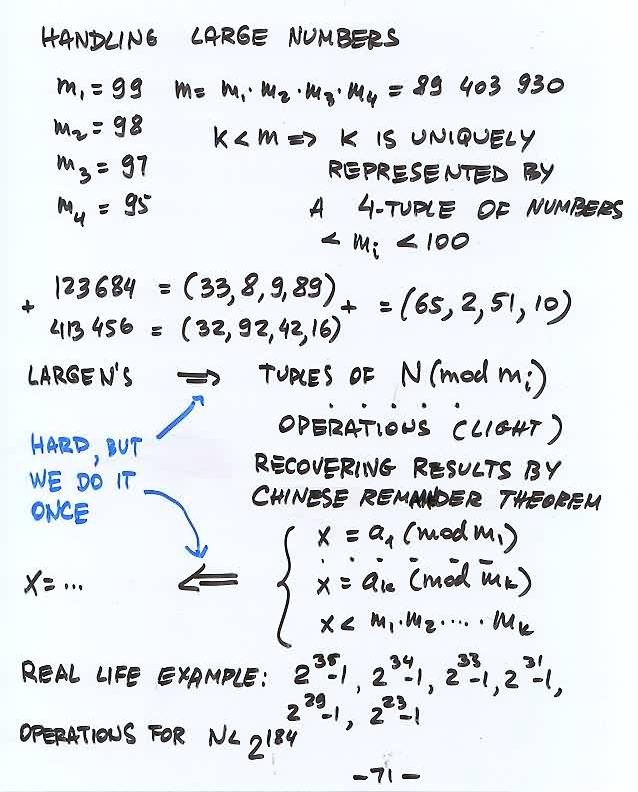 HANDLING LARGE NUMBERS
m₁ = 99 m = m₁·m₂·m₃·m₄ = 89 403 930
m₂ = 98
k < m ⇒ k IS UNIQUELY
m₃ = 97
REPRESENTED BY
m₄ = 95
A 4-TUPLE OF NUMBERS
< mᵢ < 100
123684 = (33, 8, 9, 89)
+ + = (65, 2, 51, 10)
413 456 = (32, 92, 42, 16)
LARGE N'S ⇒ TUPLES OF N (mod mᵢ)
. . . . .
OPERATIONS (LIGHT)
HARD, BUT
WE DO IT
ONCE
RECOVERING RESULTS BY
CHINESE REMAINDER THEOREM
x = a₁ (mod m₁)
. . . . . .
X = ... ⇐ { x = aₖ (mod mₖ)
x < m₁·m₂·....·mₖ
REAL LIFE EXAMPLE: 2³⁵-1, 2³⁴-1, 2³³-1, 2³¹-1,
2²⁹-1, 2²³-1
OPERATIONS FOR N < 2¹⁸⁴
-71-